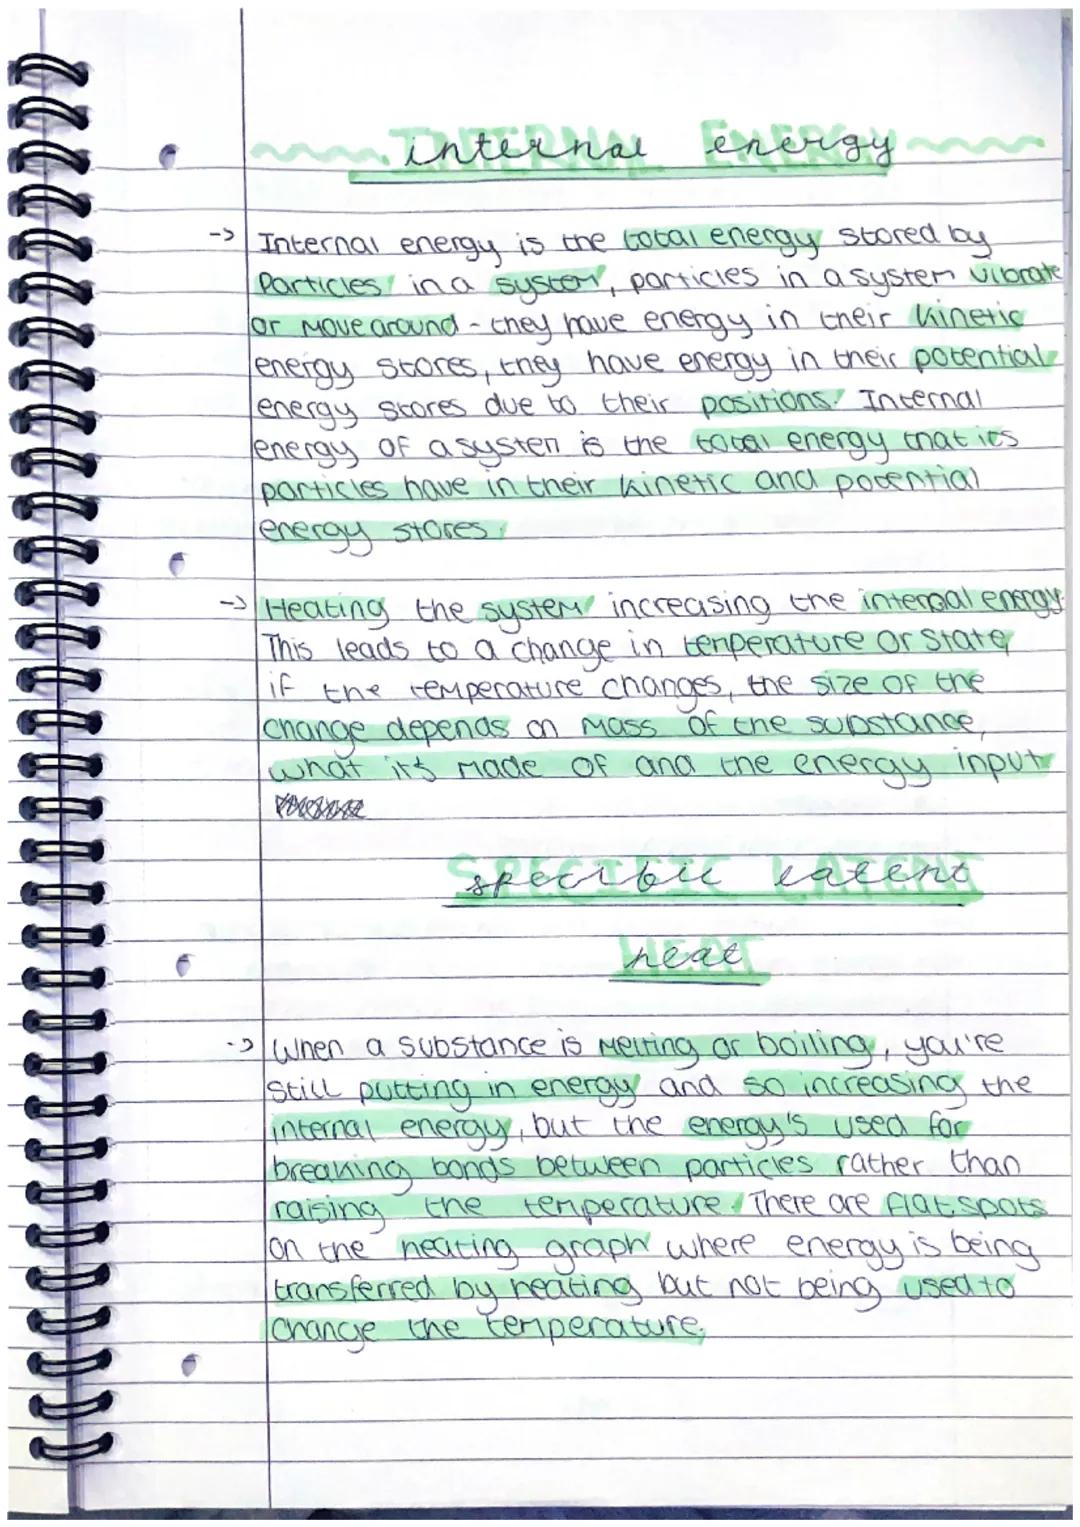 INTERNAL ENERGY
internal energy
-> Internal energy is the total energy stored by
Particles in a system, particles in a system vibrate
or move around - they have energy in their kinetic
energy stores, they have energy in their potential
energy stores due to their positions. Internal
energy of a system is the total energy that its
particles have in their kinetic and potential
energy stores.
-> Heating the system increasing the internal energy.
This leads to a change in temperature or state,
if the temperature changes, the size of the
change depends on mass of the substance,
what it's made of and the energy input
SPECIFIC LATENT
specific latent
HEAT
heat
-> When a substance is melting or boiling, you're
still putting in energy and so increasing the
internal energy, but the energy's used for
breaking bonds between particles rather than
raising the temperature. There are flat spots
on the heating graph where energy is being
transferred by heating but not being used to
change the temperature.